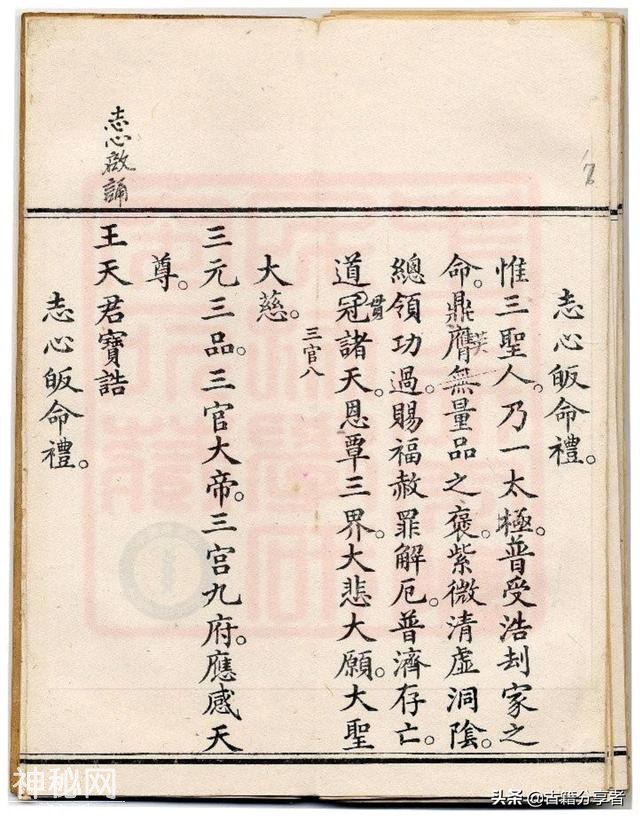 志心皈命禮。
惟三聖人。乃一太極。普受浩刦家之
命。鼎膺無量品之褒。紫微清虛洞陰。
總領功過。賜福赦罪解厄。普濟存亡。
道冠諸天。恩覃三界。大悲大願。大聖
貫
三官八
大慈。
三元三品。三官大帝。三宫九府。應感天
尊。
志心啟誦
王天君寶誥
志心皈命禮。
神秘网
头条 @古籍分享者